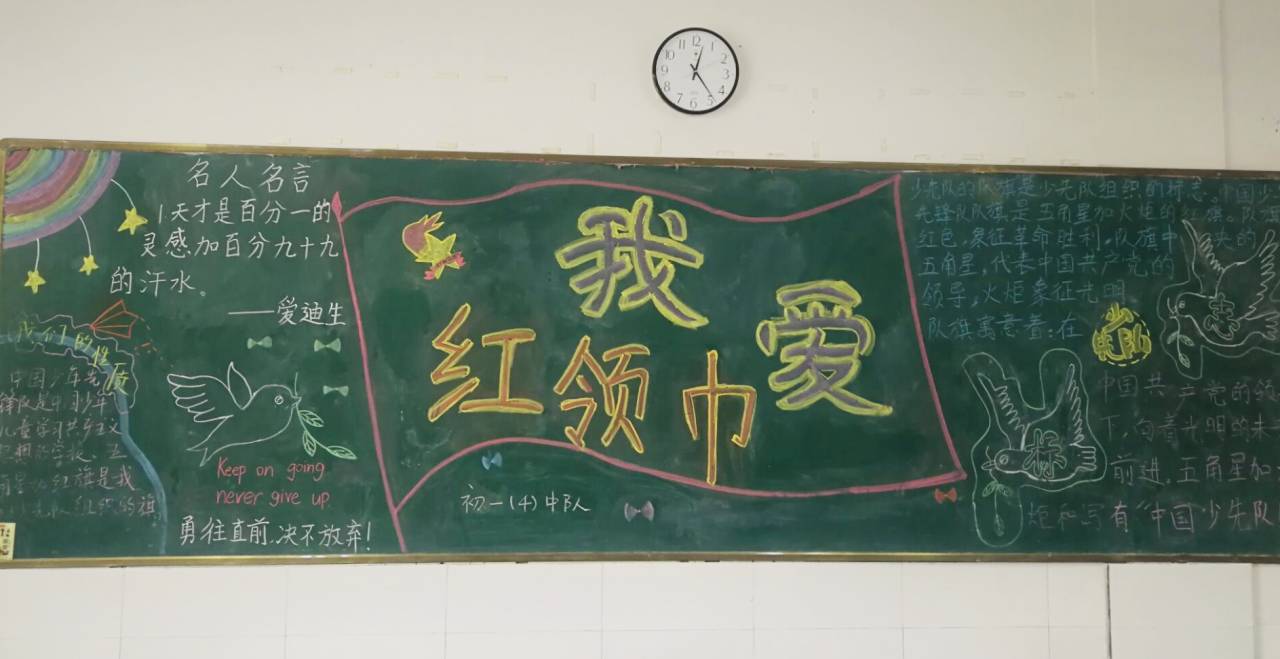 名人名言
1天才是百分一的
灵感加百分九十九
的汗水。
——爱迪生
我们的性质
中国少年先
锋队是中国少年
儿童学习共产主义
的学校、五
红旗是我
组织的旗
Keep on going
never give up
勇往直前.决不放弃!
我爱
红领巾
初一(4)中队
少先队的队旗是少先队组织的标志。中国少
先锋队队旗是五角星加火炬的红旗。队旗
红色,象征革命胜利,队旗中央的
五角星,代表中国共产党的
领导,火炬象征光明
队旗寓意着:在
少先队
标志
中国共产党的领
下,向着光明的未
前进.五角星加
炬和写有“中国少先队
12 1 2 3 4 5 6 7 8 9 10 11